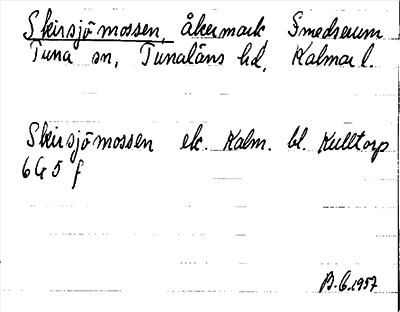 Skirsjömossen, åkermark, Smedserum
Tuna sn, Tunaläns hd, Kalmar l.
Skirsjömossen ek. Kalm. bl. Kulltorp
6G5f
B.G.1957